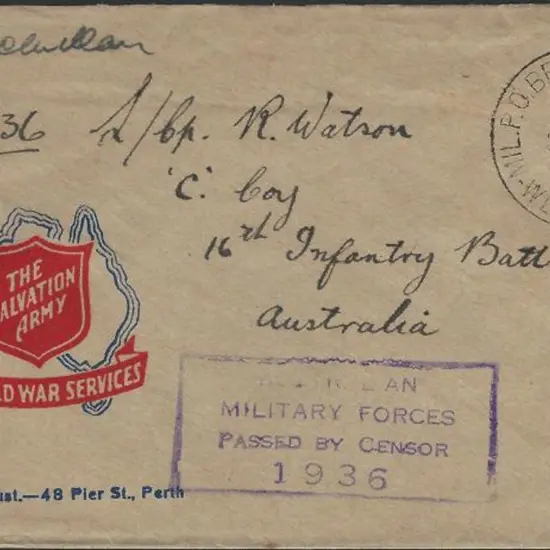 36 L/Cp. R. Watson
'C' Coy
16th Infantry Batt
Australia
MIL.P.O.
THE
SALVATION
ARMY
LD WAR SERVICES
AN
MILITARY FORCES
PASSED BY CENSOR
1936
ust.—48 Pier St., Perth